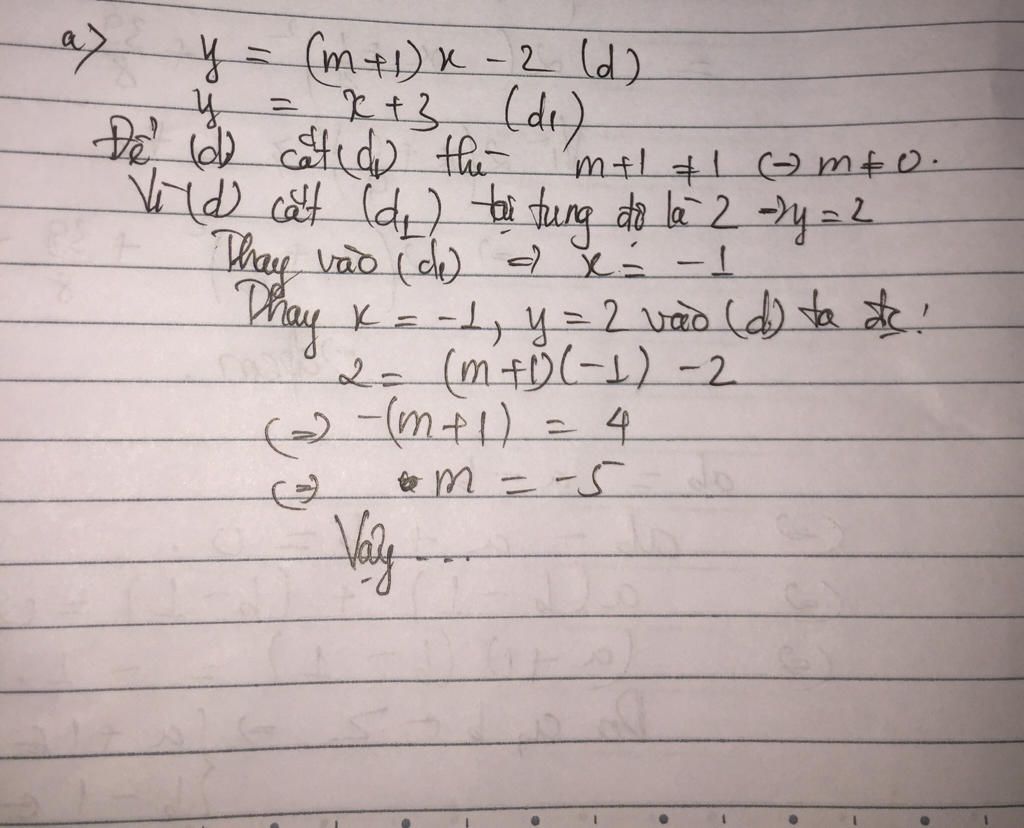 a) y = (m+1)x - 2 (d)
y = x+3 (d₁)
Để (d) cắt (d₁) thì m+1 ≠ 1 <=> m ≠ 0.
Vì (d) cắt (d₁) tại tung độ là 2 => y = 2
Thay vào (d₁) => x = -1
Thay x = -1, y = 2 vào (d) ta đc:
2 = (m+1)(-1) - 2
<=> -(m+1) = 4
<=> m = -5
Vậy ...